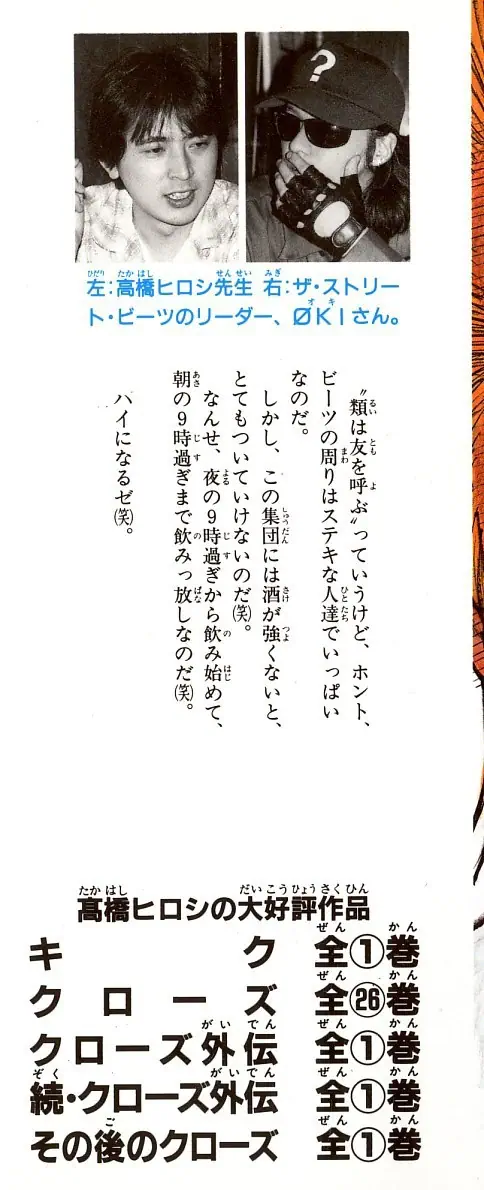 ?
左:高橋ヒロシ先生 右:ザ・ストリー
ト・ビーツのリーダー、ØKIさん。
〝類は友を呼ぶ〟っていうけど、ホント、
ビーツの周りはステキな人達でいっぱい
なのだ。
しかし、この集団には酒が強くないと、
とてもついていけないのだ(笑)。
なんせ、夜の9時過ぎから飲み始めて、
朝の9時過ぎまで飲みっ放しなのだ(笑)。
ハイになるゼ(笑)。
髙橋ヒロシの大好評作品
キク 全①巻
クローズ 全㉖巻
クローズ外伝 全①巻
続・クローズ外伝 全①巻
その後のクローズ 全①巻